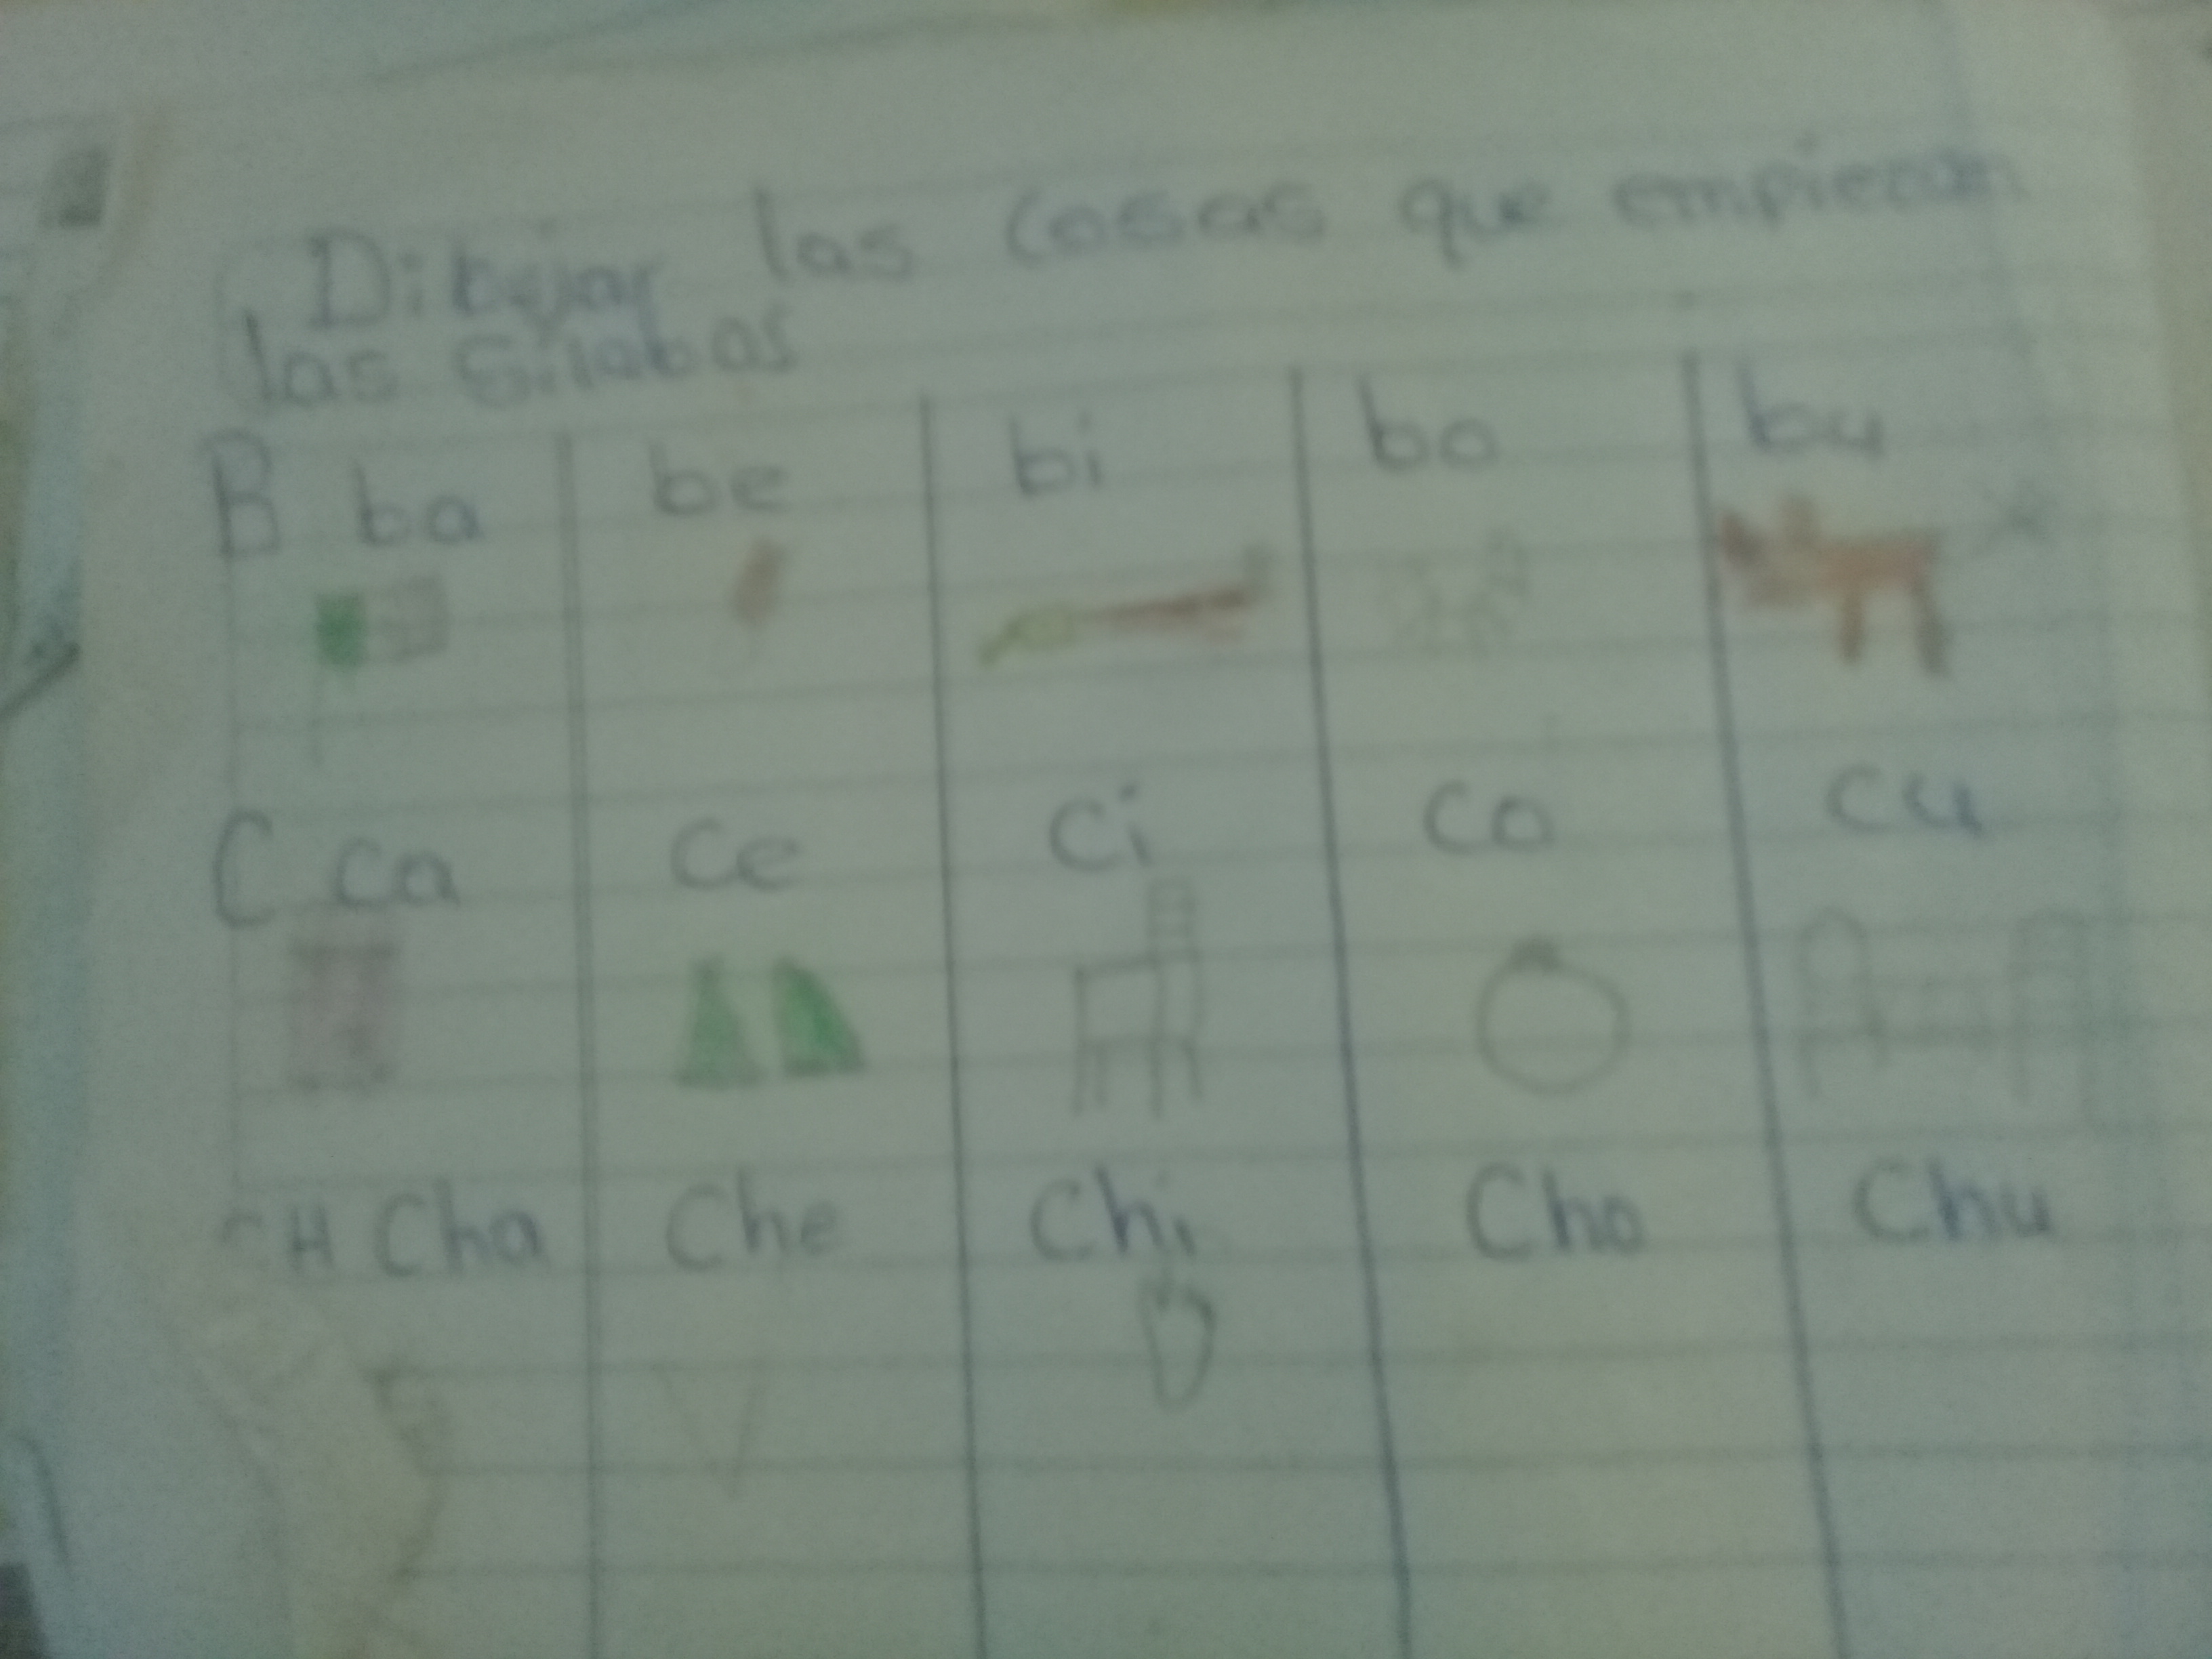 Dibujar las cosas que empiezan
las silabas
B ba be bi bo bu
C ca ce ci co cu
CH Cha Che Chi Cho Chu